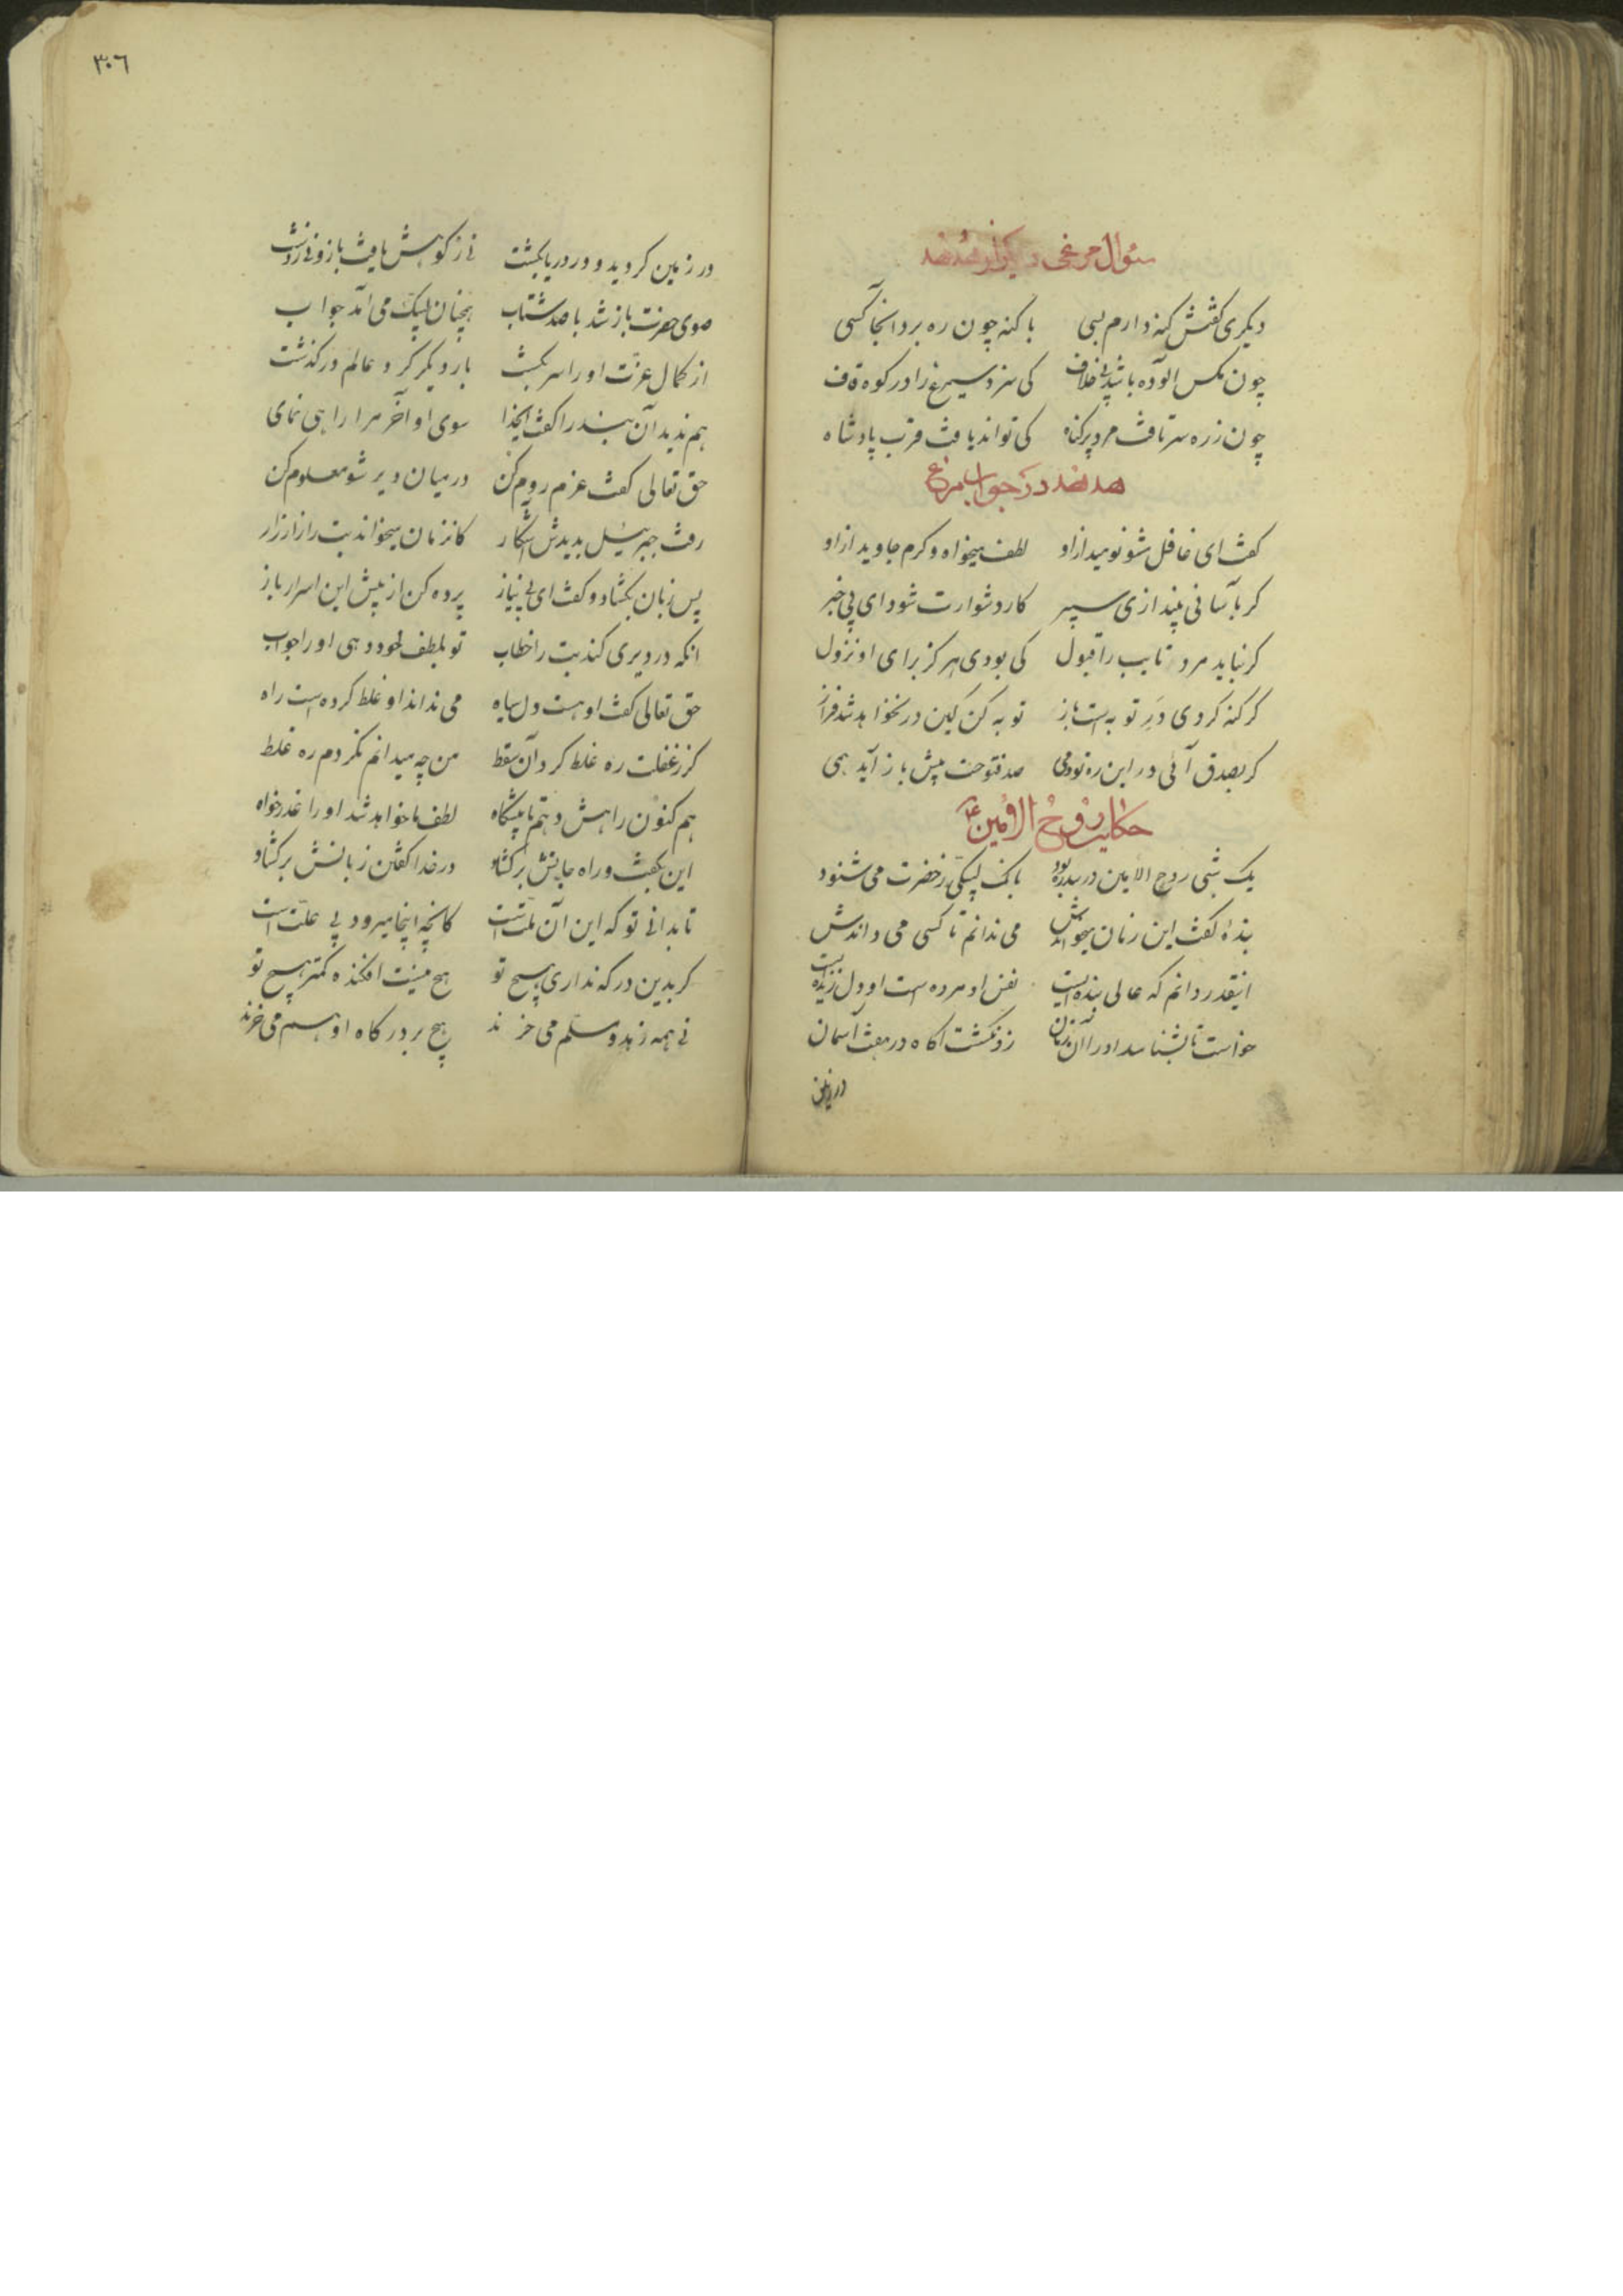 سئوال مرغی دیگر از هدهد
دیگری گفتش گنه دارم بسی با گنه چون ره برد آنجا کسی
چون مگس آلوده باشد بی خلاف کی سزد سیمرغ را در کوه قاف
چون ز ره سر تافت مرد پر گناه کی تواند یافت قرب پادشاه
هدهد در جواب مرغ
گفت ای غافل مشو نومید از او لطف میخواه و کرم جاوید از او
گر بآسانی بیندازی سپر کار دشوارت شود ای بی خبر
گر نباید مرد تایب را قبول کی بودی هرگز برای او نزول
گر گنه کردی در توبه است باز توبه کن کین در نخواهد شد فراز
گر بصدق آئی در این ره تو دمی صد فتوحت پیش باز آید همی
حکایت روح الامین ع
یک شبی روح الامین در سدره بود بانک لبیکی ز حضرت می شنود
بندهٔ گفت این زمان میخواندش می ندانم تا کسی می داندش
اینقدر دانم که عالی بنده ایست نفس او مرده است او دل زنده ایست
خواست تا بشناسد او را آن زمان زو نگشت آگاه در هفت آسمان
در زمین
٣٠٦
در زمین گردید و در دریا بگشت نی ز کوهش یافت باز و نی ز دشت
سوی حضرت باز شد با صد شتاب همچنان لبیک می آمد جواب
از کمال عزت او را سر بگشت بار دیگر گرد عالم در گذشت
هم ندید آن بنده را گفت ایخدا سوی او آخر مرا راهی نمای
حق تعالی گفت عزم روم کن در میان دیر شو معلوم کن
رفت جبرئیل بدیدش آشکار کانزمان میخواند بت را زار زار
پس زبان بگشاد و گفت ای بی نیاز پرده کن از پیش این اسرار باز
آنکه در دیری کند بت را خطاب تو بلطف خود دهی او را جواب
حق تعالی گفت او هست دل سیاه می نداند او غلط کرده است راه
گر ز غفلت ره غلط کرد آن سقط من چه میدانم نکردم ره غلط
هم کنون راهش دهم تا پیشگاه لطف ما خواهد شد او را عذر خواه
این بگفت و راه جانش بر گشاد در خدا گفتن زبانش بر گشاد
تا بدانی تو که این آن ملت است کانچه اینجا میرود بی علت است
گر بدین درگه نداری هیچ تو هیچ نیست افکنده کمتر پیچ تو
نی همه زهد مسلم می خرند هیچ بر درگاه او هم می خرند